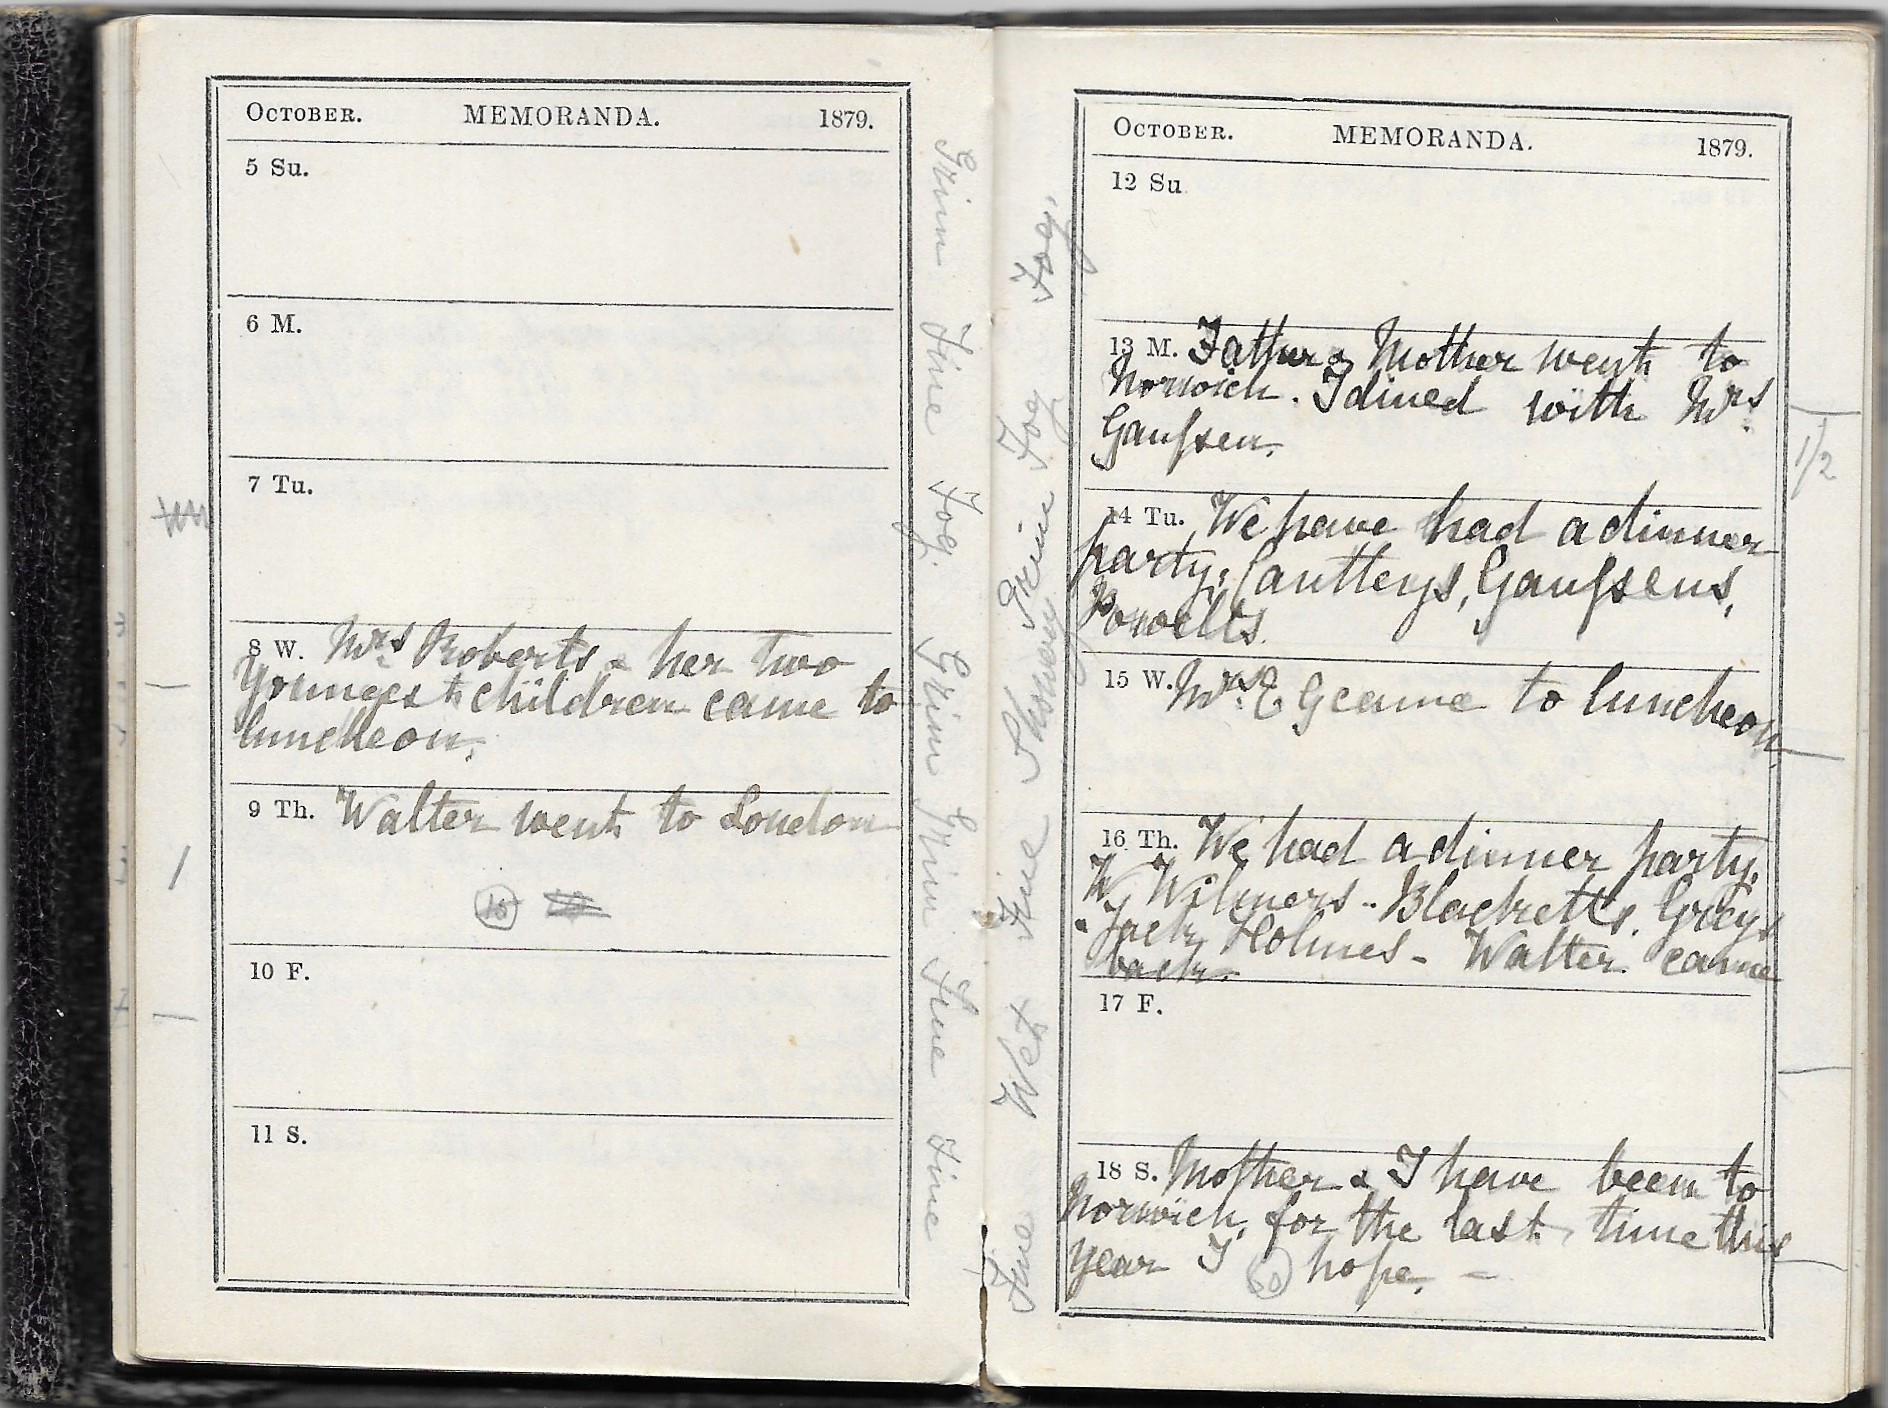 OCTOBER. MEMORANDA. 1879.
5 Su.
6 M.
7 Tu.
8 W. Mrs Roberts & her two
youngest children came to
luncheon.
9 Th. Walter went to London
15
10 F.
11 S.
Grim Fine Fog. Grim Grim Fine Fine
Fine Wet Fine Showery Grim Fog Fog.
OCTOBER. MEMORANDA. 1879.
12 Su
13 M. Father & Mother went to
Norwich. I dined with Mrs
Gaussen.
1/2
14 Tu. We have had a dinner
party. Cautleys, Gaussens,
15 W. Mrs E G came to luncheon
16 Th. We had a dinner party.
W. Wilmers - Blacketts. Greys
Jack Holmes - Walter came
back.
17 F.
18 S. Mother & I have been to
Norwich, for the last time this
year I hope. -
60